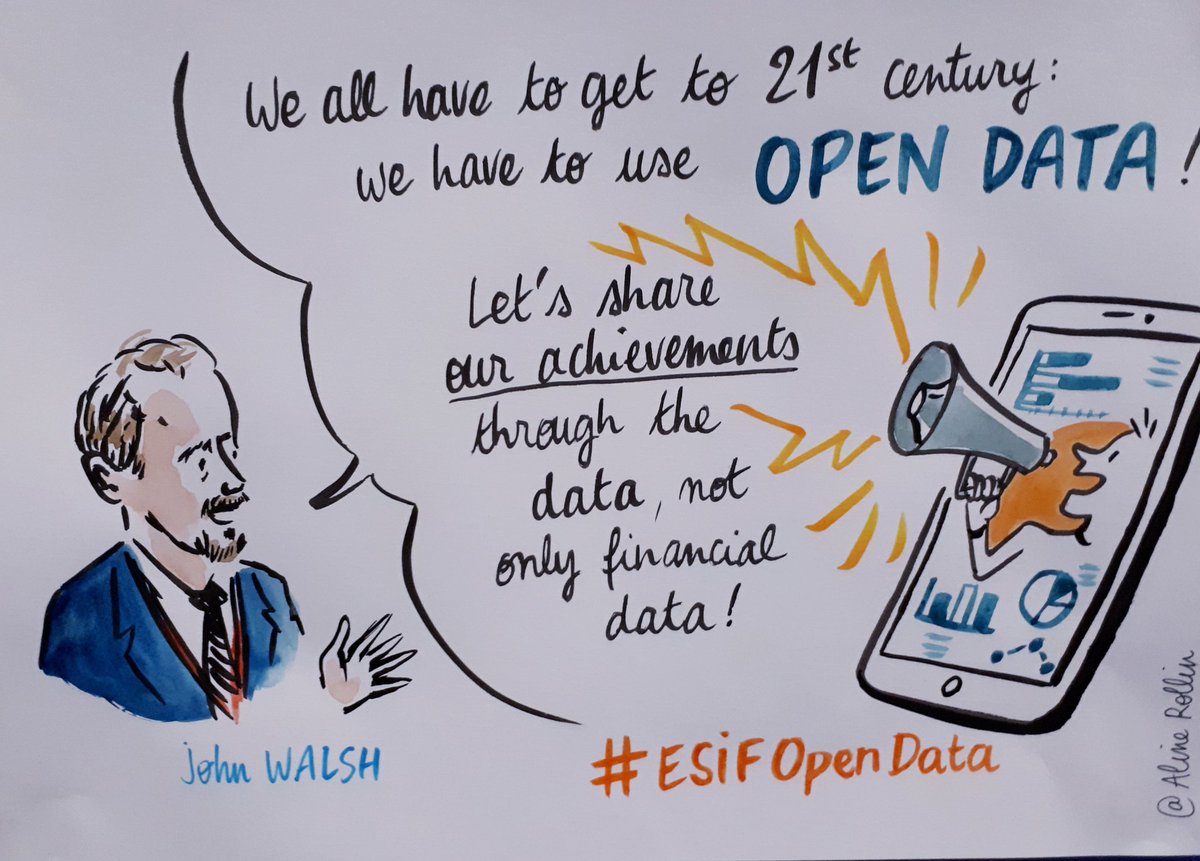 We all have to get to 21st century:
we have to use OPEN DATA!
Let's share
our achievements
through the
data, not
only financial
data!
John WALSH
#ESiFOpenData
@Aline Rollin